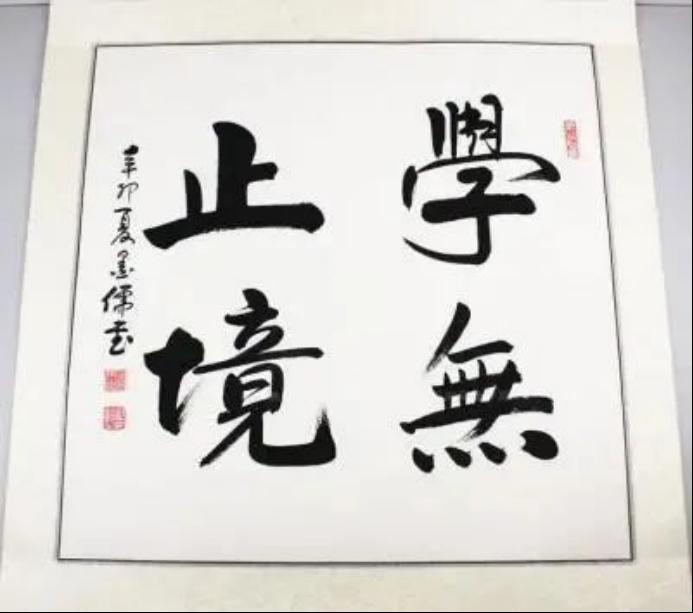 學無
止境
辛卯夏墨儒書